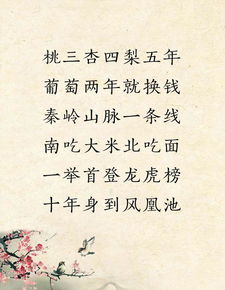 桃三杏四梨五年
葡萄两年就换钱
秦岭山脉一条线
南吃大米北吃面
一举首登龙虎榜
十年身到凤凰池